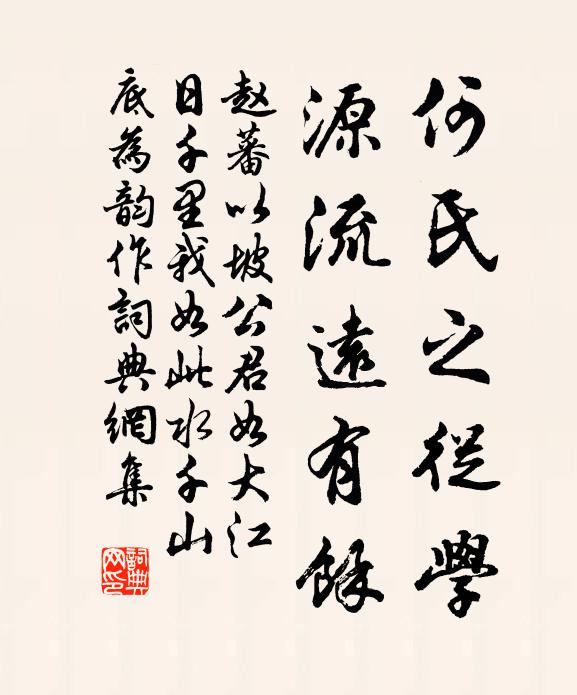 何氏之從學
源流遠有餘
趙蕃以坡公君如大江
日千里我如此水千山
底為韵作詞典網集
詞典网印